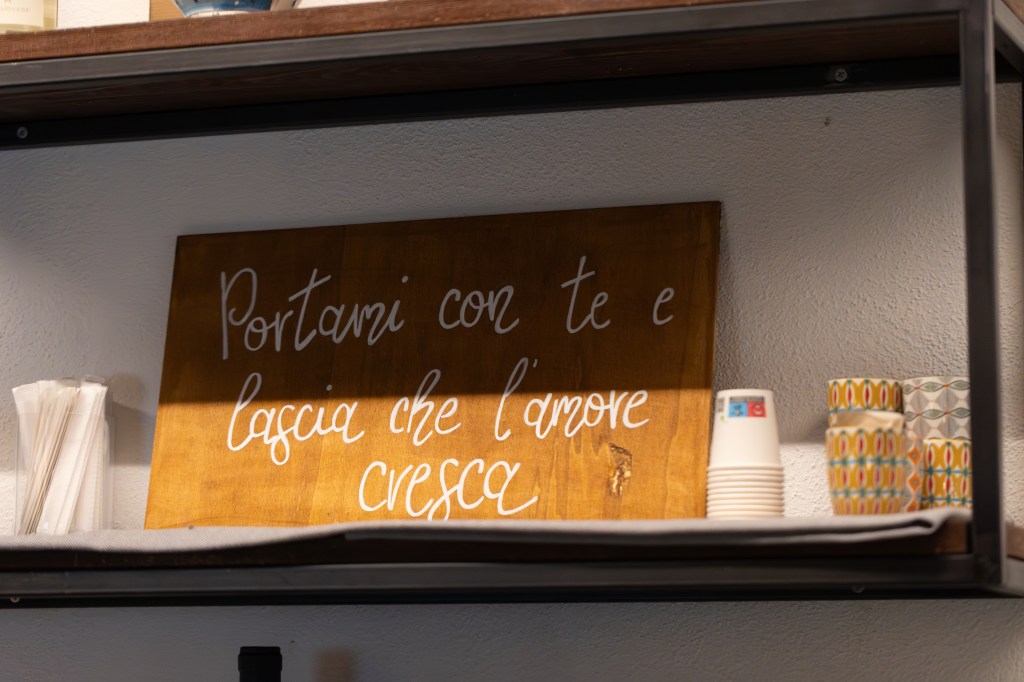 Portami con te e
lascia che l'amore
cresca